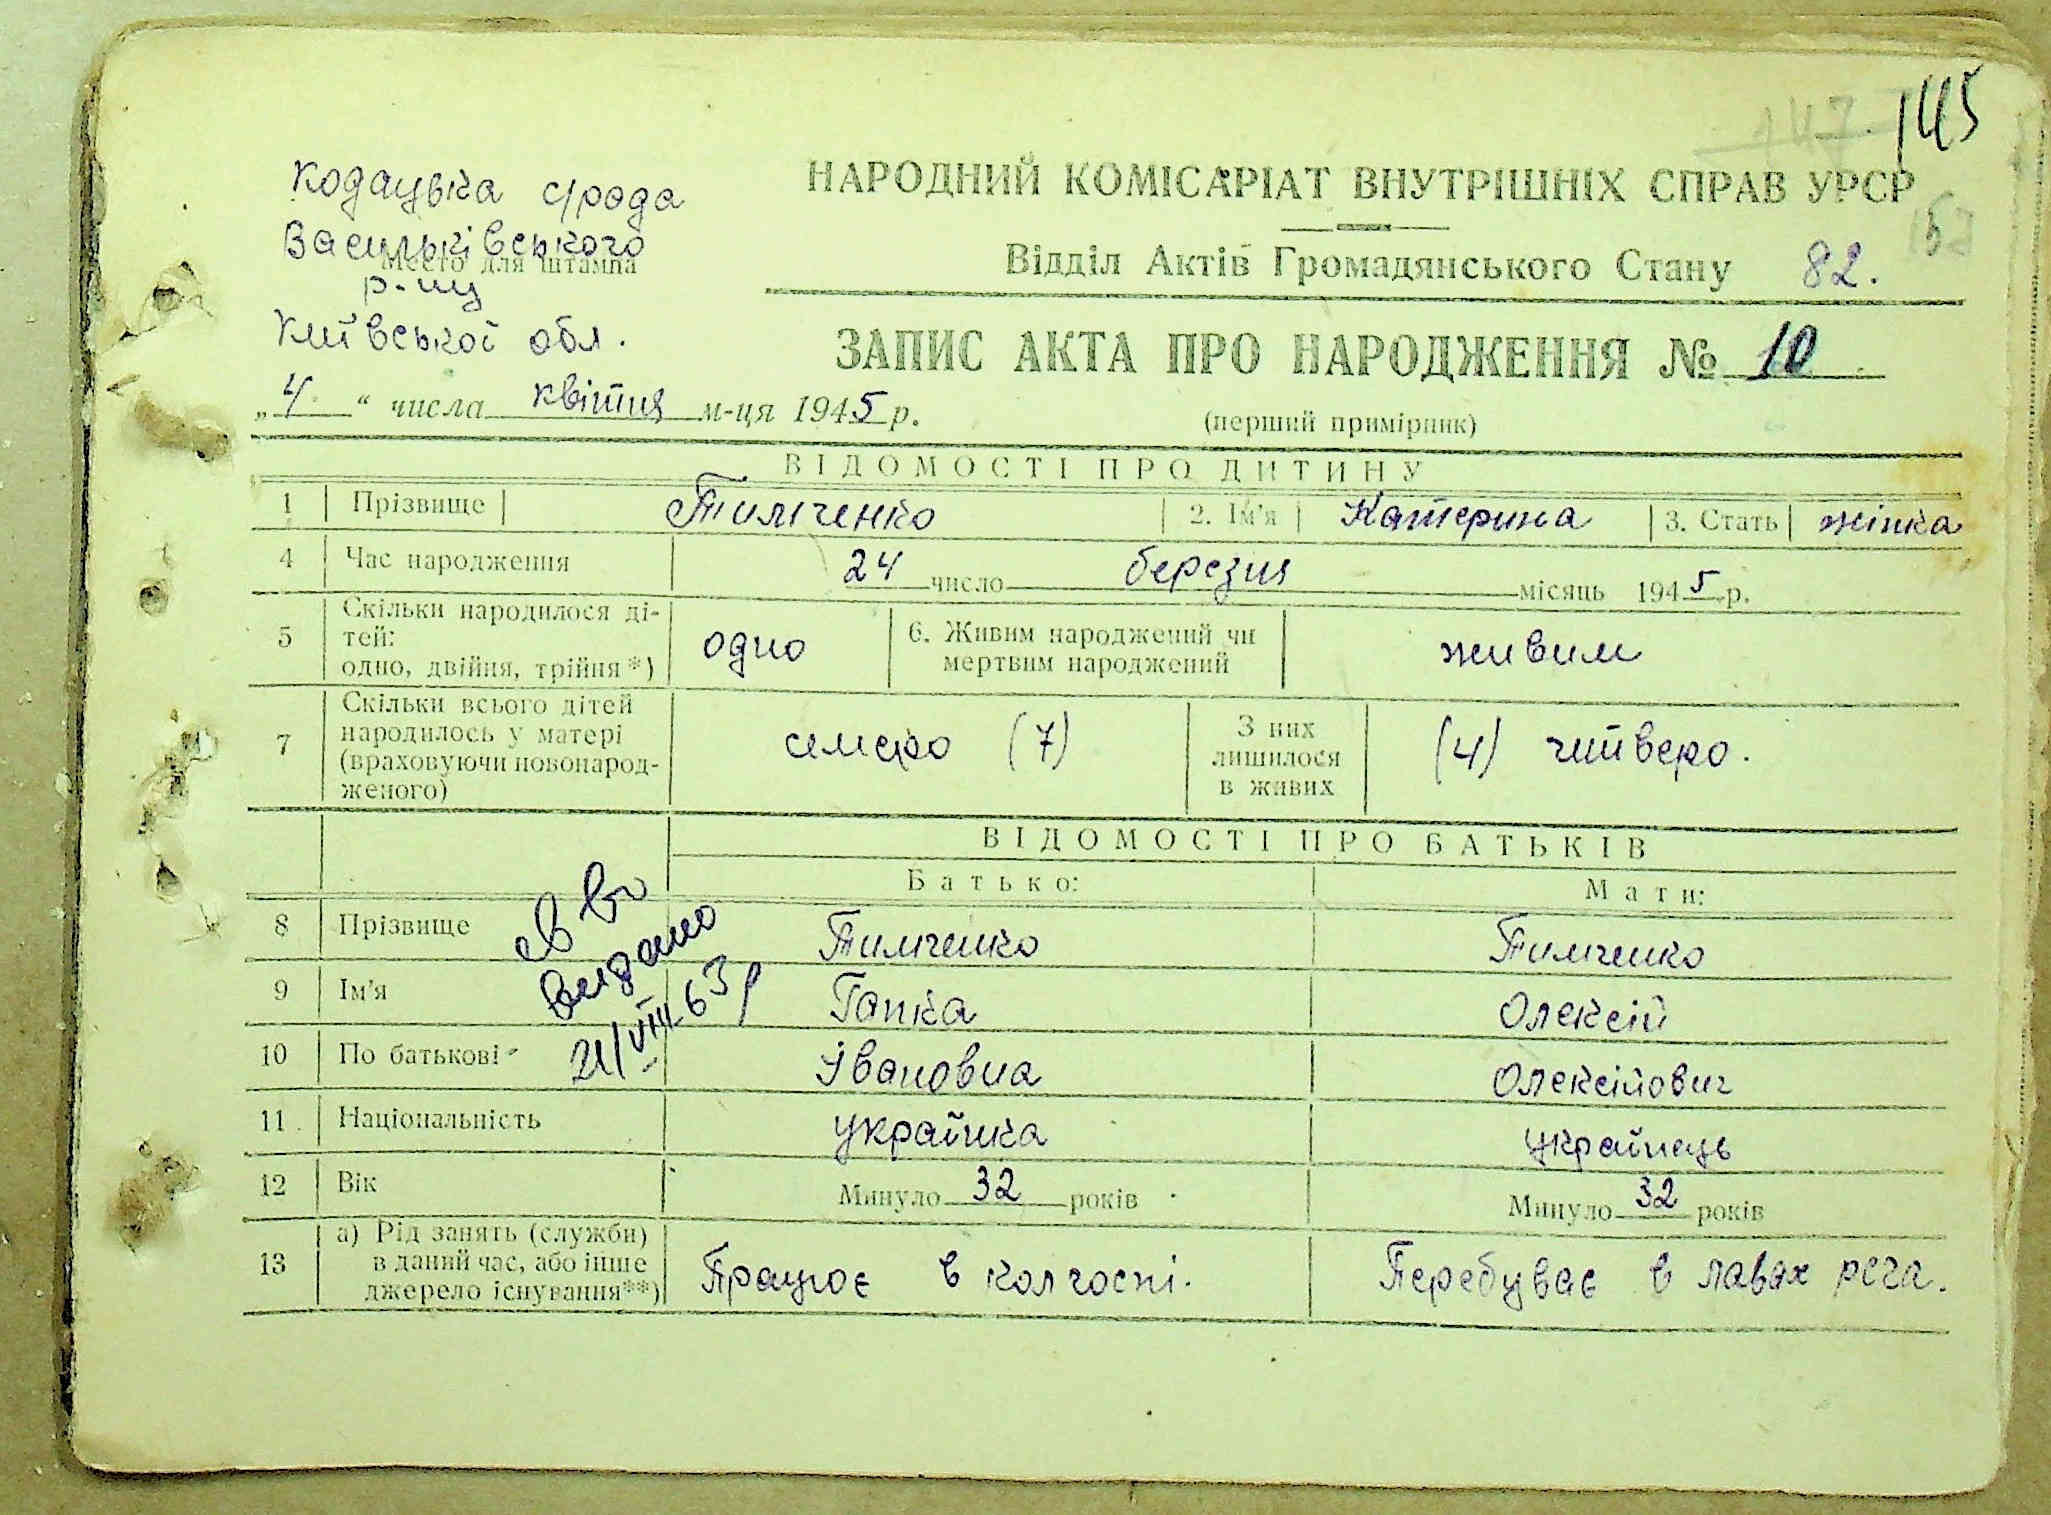 145
147
Кодацька с/рада
Васильківського
Место для штампа
р-ну
Київської обл.
НАРОДНИЙ КОМІСАРІАТ ВНУТРІШНІХ СПРАВ УРСР
Відділ Актів Громадянського Стану 82.
ЗАПИС АКТА ПРО НАРОДЖЕННЯ № 10
„4“ числа квітня м-ця 1945 р.
(перший примірник)
ВІДОМОСТІ ПРО ДИТИНУ
1 Прізвище Тимченко 2. Ім'я Катерина 3. Стать жінка
4 Час народження 24 число березня місяць 1945 р.
5 Скільки народилося ді-
тей:
одно, двійня, трійня*) одно 6. Живим народжений чи
мертвим народжений живим
7 Скільки всього дітей
народилось у матері
(враховуючи новонарод-
женого) семеро (7) З них
лишилося
в живих (4) читверо.
ВІДОМОСТІ ПРО БАТЬКІВ
Батько: Мати:
8 Прізвище Тимченко Тимченко
9 Ім'я Гапка Олексій
10 По батькові Івановна Олексійович
11 Національність українка українець
12 Вік Минуло 32 років Минуло 32 років
13 а) Рід занять (служби)
в даний час, або інше
джерело існування**) Працює в колгоспі. Перебуває в лавах рсча.
видано
21/VIII-63р